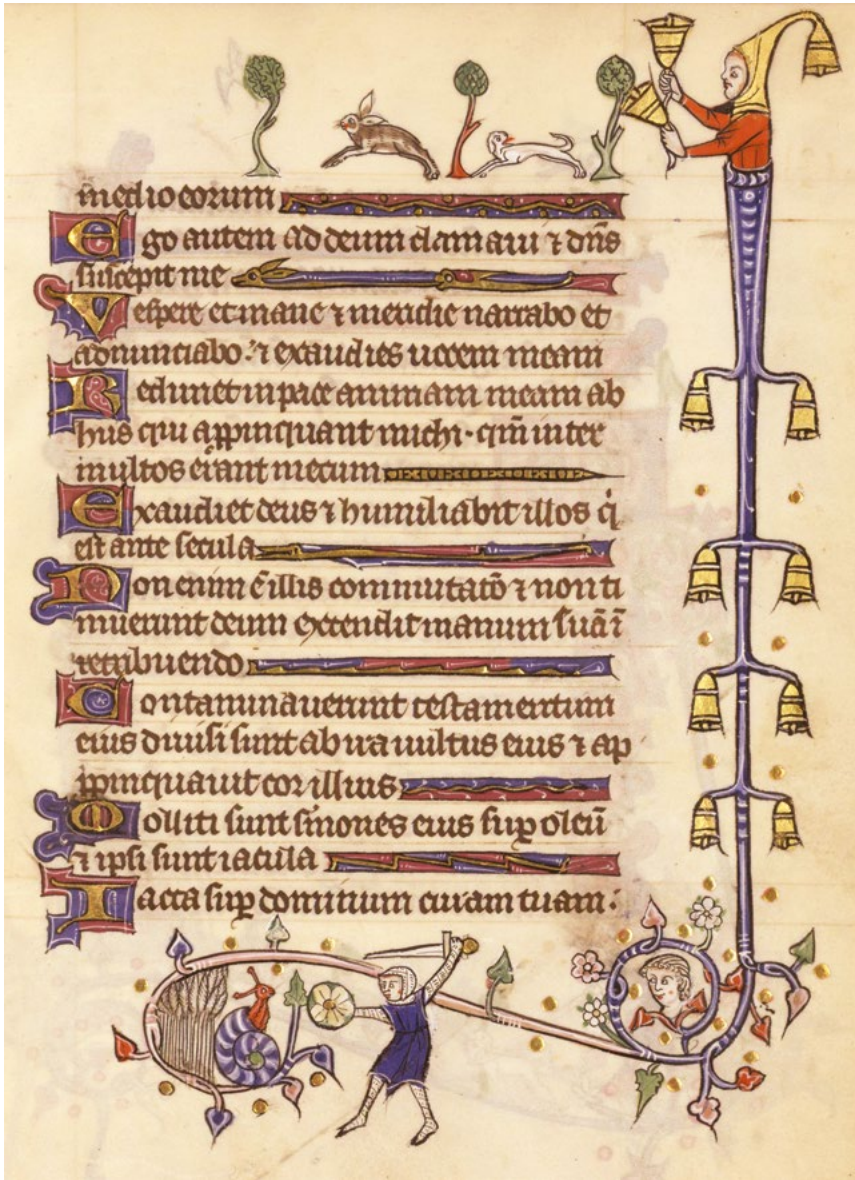 in medio eorum
Ego autem ad deum clamaui ⁊ dn̄s
suscepit me
Vespere et mane ⁊ meridie narrabo et
adnunciabo: ⁊ exaudies uocem meam
Redimet in pace animam meam ab
hiis qui ap̄pinquant michi · qm̄ inter
multos erant mecum
Exaudiet deus ⁊ humiliabit illos q̇
est ante secula
Non enim ē illis commutatō ⁊ non ti
muerunt deum extendit manum suā ī
retribuendo
Contaminauerunt testamentum
eius diuisi sunt ab ira uultus eius ⁊ ap
p̄pinquauit cor illius
Molliti sunt s̄mones eius sup̱ oleū
⁊ ipsi sunt iacula
Iacta sup̱ dominum curam tuam :